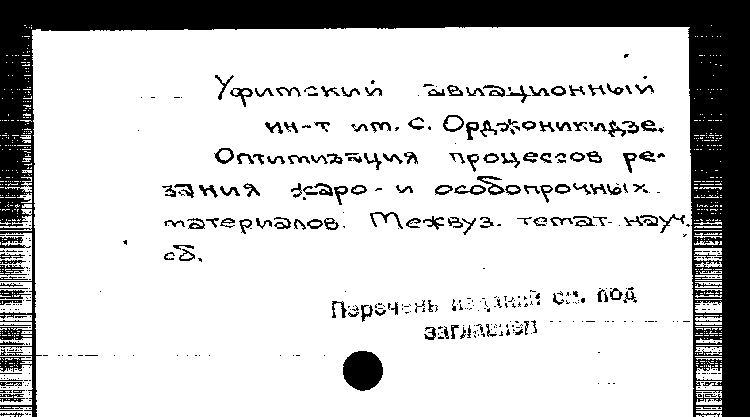 Уфимский авиационный
ин-т им. С. Орджоникидзе.
Оптимизация процессов ре-
зания жаро- и особопрочных
материалов. Межвуз. темат. науч.
сб.
Перечень изданий см. под
заглавием